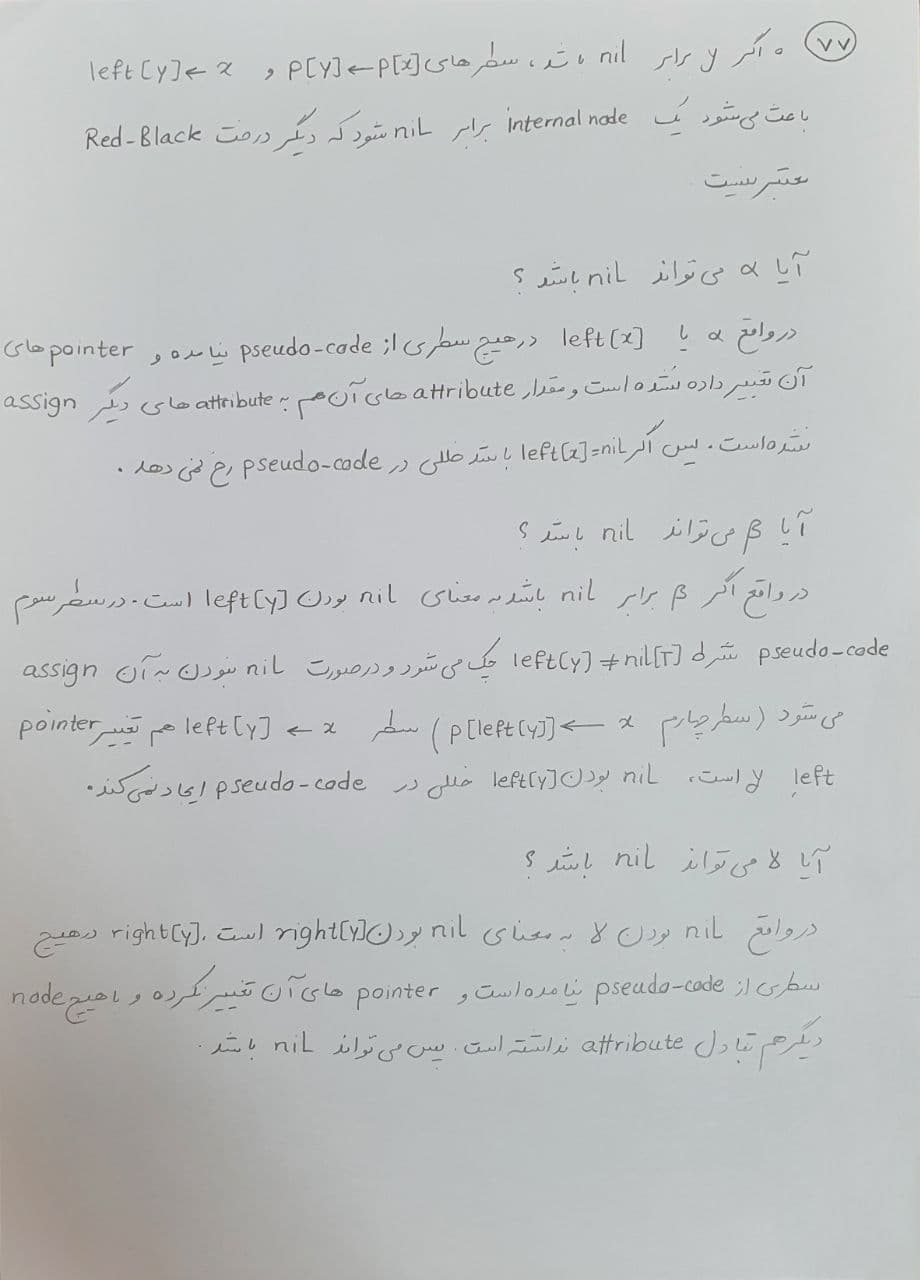 ۷۷
• اگر y برابر nil باشد، سطرهای p[y]←p[x] و left[y]← x
باعث می‌شود یک internal node برابر nil شود که دیگر درخت Red-Black
معتبر نیست
آیا α می‌تواند nil باشد ؟
در واقع α یا left[x] در هیچ سطری از pseudo-code نیامده و pointer های
آن تغییر داده نشده است و مقدار attribute های آن هم به attribute های دیگر assign
نشده است. پس اگر left[x]=nil باشد خللی در pseudo-code رخ نمی دهد.
آیا β می‌تواند nil باشد ؟
در واقع اگر β برابر nil باشد به معنای nil بودن left[y] است. در سطر سوم
pseudo-code شرط left[y] ≠ nil[T] چک می‌شود و در صورت nil نبودن به آن assign
می‌شود (سطر چهارم p[left[y]] ← x) سطر left[y] ← x هم تغییر pointer
left, y است، nil بودن left[y] خللی در pseudo-code ایجاد نمی‌کند.
آیا γ می‌تواند nil باشد ؟
در واقع nil بودن γ به معنای nil بودن right[y] است. right[y] در هیچ
سطری از pseudo-code نیامده است و pointer های آن تغییر نکرده و با هیچ node
دیگر هم تبادل attribute نداشته است. پس می‌تواند nil باشد.